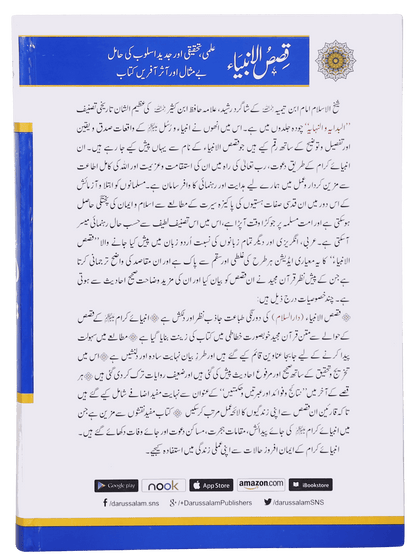 قصص الانبیاء
علمی، تحقیقی اور جدید اسلوب کی حامل
بے مثال اور اثر آفریں کتاب
شیخ الاسلام امام ابن تیمیہ رحمہ اللہ کے شاگرد رشید، علامہ حافظ ابن کثیر رحمہ اللہ کی عظیم الشان تاریخی تصنیف
"البدایہ والنہایہ" چودہ جلدوں میں ہے۔ اس میں انھوں نے انبیاء و رُسل علیہم السلام کے واقعات صدق و یقین
اور تفصیل و توضیح کے ساتھ رقم کیے ہیں جو قصص الانبیاء کے نام سے یہاں پیش کیا جا رہے ہیں۔ ان
انبیائے کرام کے طریق دعوت، رب تعالیٰ کی راہ میں ان کی استقامت و عزیمت اور اللہ کی کامل اطاعت
سے مزین کردار و عمل میں ہمارے لیے ہدایت اور رہنمائی کا وافر سامان ہے۔ مسلمانوں کو ابتلا و آزمائش
کے اس دور میں ان قدسی صفات ہستیوں کی پاکیزہ سیرت کے مطالعے سے اسلام و ایمان کی پختگی حاصل
ہو سکتی ہے اور امت مسلمہ پر جو کڑا وقت آ پڑا ہے، اس میں اس تصنیف لطیف سے حسب حال رہنمائی میسر
آ سکتی ہے۔ عربی، انگریزی اور دیگر تمام زبانوں کی نسبت اُردو زبان میں پیش کیا جانے والا "قصص
الانبیاء" کا یہ معیاری ایڈیشن ہر طرح کی غلطی اور سقم سے پاک ہے اور ان مقاصد کی واضح ترجمانی کرتا
ہے جن کے پیش نظر قرآن مجید نے ان قصص کو بیان کیا اور ان کی مزید وضاحت صحیح احادیث سے ہوتی
ہے۔ چند خصوصیات درج ذیل ہیں:
قصص الانبیاء (دارالسلام) کی دو رنگی طباعت جاذب نظر اور دلکش ہے ۞ انبیائے کرام علیہم السلام کے قصص
کے حوالے سے متن قرآن مجید خوبصورت خطاطی میں کتاب کی زینت بنایا گیا ہے ۞ مطالعے میں سہولت
پیدا کرنے کے لیے جابجا عناوین قائم کیے گئے ہیں اور طرز بیان نہایت سادہ اور دلنشیں ہے ۞ اس میں
تخریج و تحقیق کے ساتھ صحیح اور مرفوع احادیث پیش کی گئی ہیں اور ضعیف روایات ترک کر دی گئی ہیں ۞ ہر
قصے کے آخر میں "نتائج و فوائد اور عبرتیں و حکمتیں" کے عنوان سے نہایت مفید اضافے شامل کیے گئے ہیں
تاکہ قارئین ان قصص سے اپنی زندگیوں کا لائحہ عمل مرتب کر سکیں ۞ کتاب مفید نقشوں سے مزین ہے جن
میں انبیائے کرام علیہم السلام کی جائے پیدائش، مقامات ہجرت، مساکن دعوت اور جائے وفات دکھائے گئے ہیں۔
انبیائے کرام کے ایمان افروز حالات سے اپنی عملی زندگی میں استفادہ کیجیے۔
Google play nook App Store amazon.com iBookstore
/darussalam.sns /+DarussalamPublishers /darussalamSNS